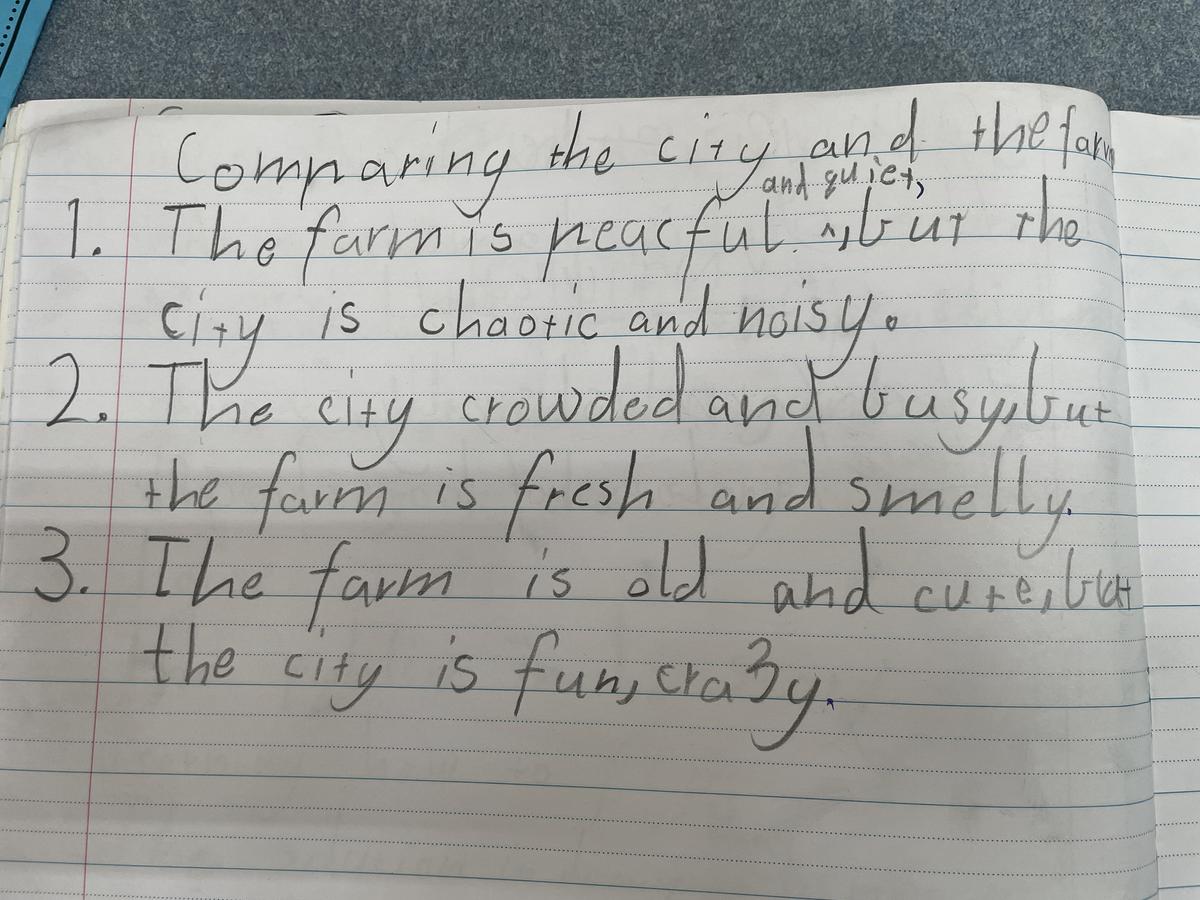 Comparing the city and the farm
and quiet,
1. The farm is peacful ^, but the
city is chaotic and noisy.
2. The city crowded and busy, but
the farm is fresh and smelly.
3. The farm is old and cute, but
the city is fun, crazy.